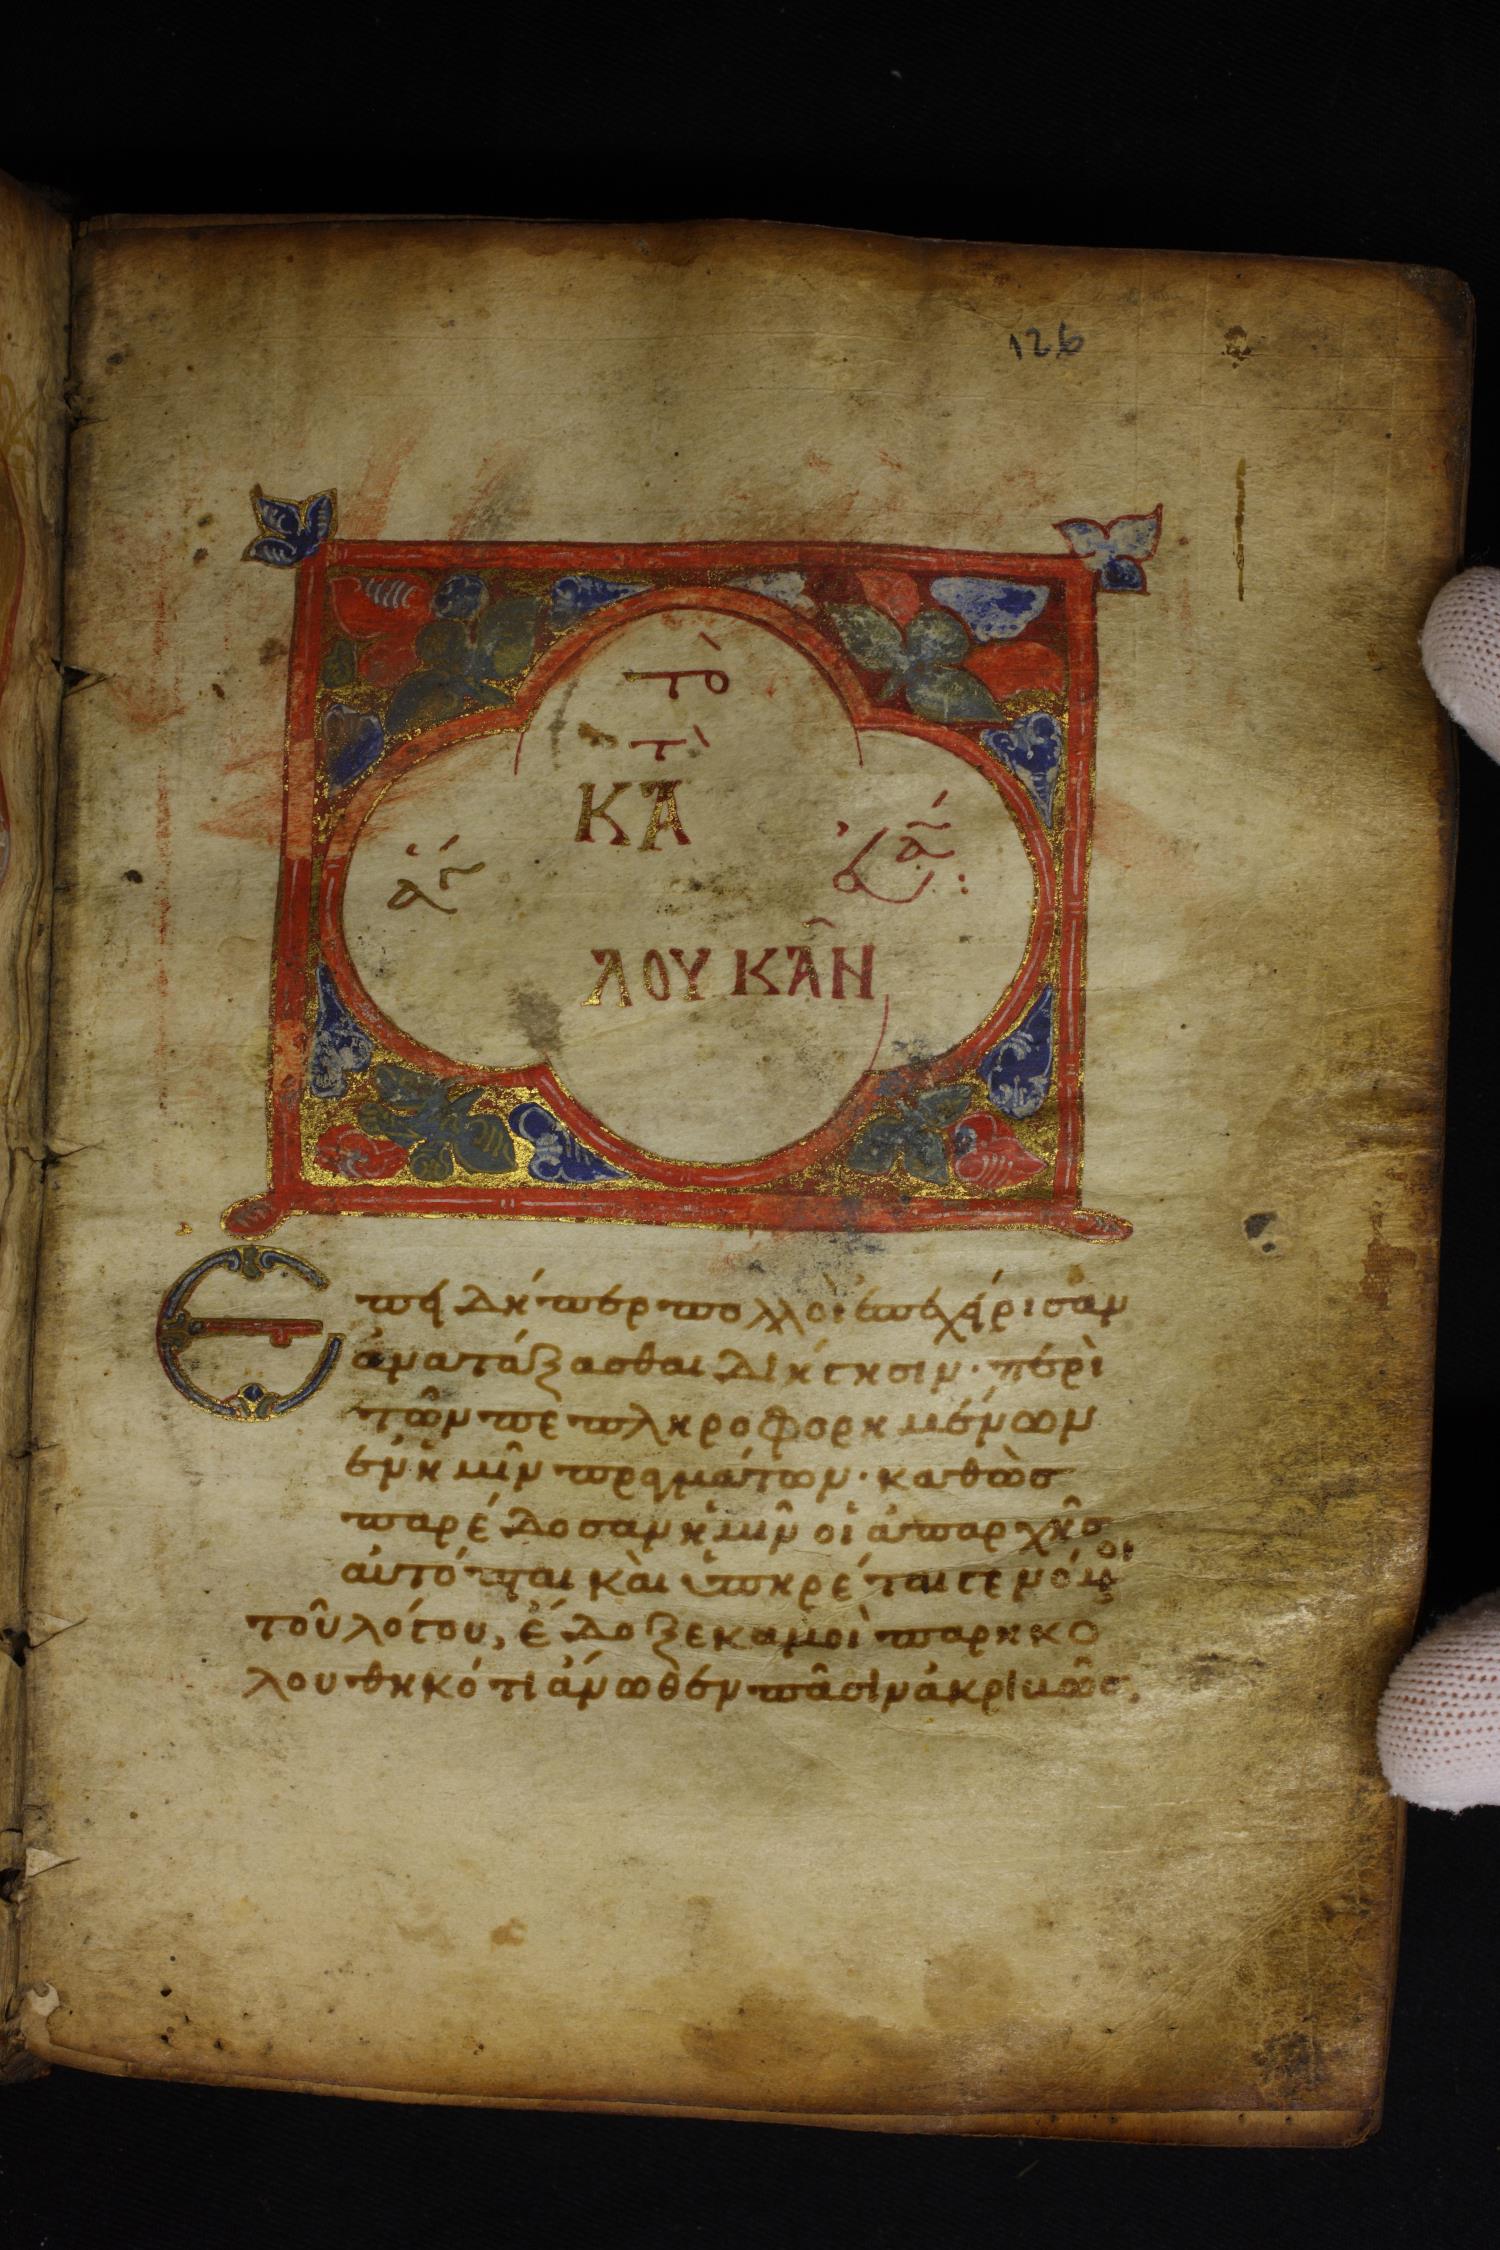 126
τὸ
κα
τὰ
ἅγ
ἐυα
λουκᾶν
Επεὶ δήπερ πολλοὶ ἐπεχείρισαν
ἀνατάξασθαι διήγησιν· περὶ
τῶν πεπληροφορημένων
ἐν ἡμῖν πραγμάτων· καθὼσ
παρέδοσαν ἡμῖν οἱ ἀπαρχῆσ
αὐτόπται καὶ ὑπηρέται γενόμενοι
τοῦ λόγου, ἔδοξε καμοὶ παρηκο
λουθηκότι ἄνωθεν πᾶσιν ἀκριβῶς,